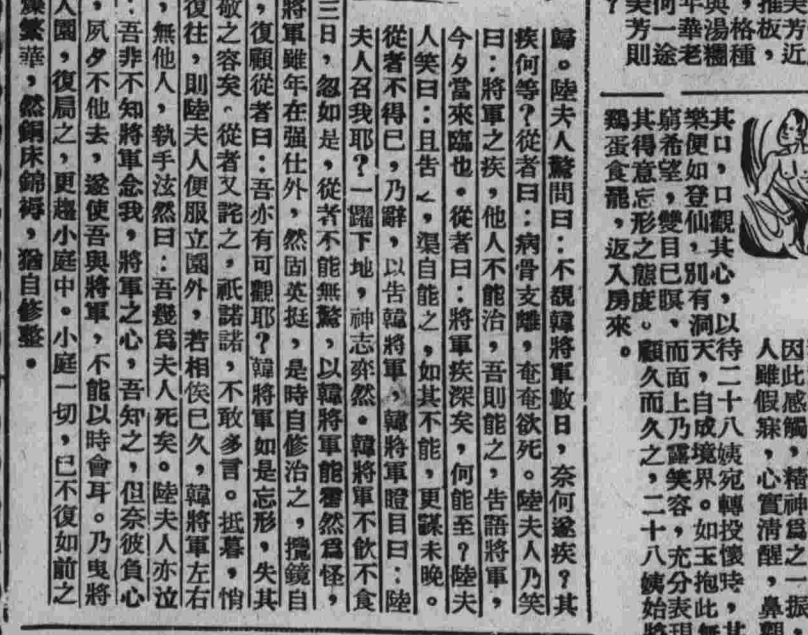 美芳近
推板，
，格種
與湯糰
年華老
何一途
美芳則
？
因此感觸，精神爲之一振，
人雖假寐，心實清醒，鼻觀
其口，口觀其心，以待二十八姨宛轉投懷時，其
樂便如登仙，別有洞天，自成境界。如玉抱此無
窮希望，雙目已瞑，而面上乃露笑容，充分表現
其得意忘形之態度。顧久而久之，二十八姨始將
鷄蛋食罷，返入房來。
歸。陸夫人驚問曰：不覩韓將軍數日，奈何遂疾？其
疾何等？從者曰：病骨支離，奄奄欲死。陸夫人乃笑
曰：將軍之疾，他人不能治，吾則能之，告語將軍，
今夕當來臨也。從者曰：將軍疾深矣，何能至？陸夫
人笑曰：且告之，渠自能之，如其不能，更謀未晚。
從者不得已，乃辭，以告韓將軍，韓將軍瞪目曰：陸
夫人召我耶？一躍下地，神志弈然。韓將軍不飲不食
三日，忽如是，從者不能無驚，以韓將軍能霍然爲怪，
將軍雖年在强仕外，然固英挺，是時自修治之，攬鏡自
，復顧從者曰：吾亦有可觀耶？韓將軍如是忘形，失其
敬之容矣。從者又詫之，祇諾諾，不敢多言。抵暮，悄
復往，則陸夫人便服立園外，若相俟已久，韓將軍左右
，無他人，執手泫然曰：吾幾爲夫人死矣。陸夫人亦泣
：吾非不知將軍念我，將軍之心，吾知之，但奈彼負心
，夙夕不他去，遂使吾與將軍，不能以時會耳。乃曳將
入園，復局之，更趨小庭中。小庭一切，已不復如前之
繁華，然銅床錦褥，猶自修整。